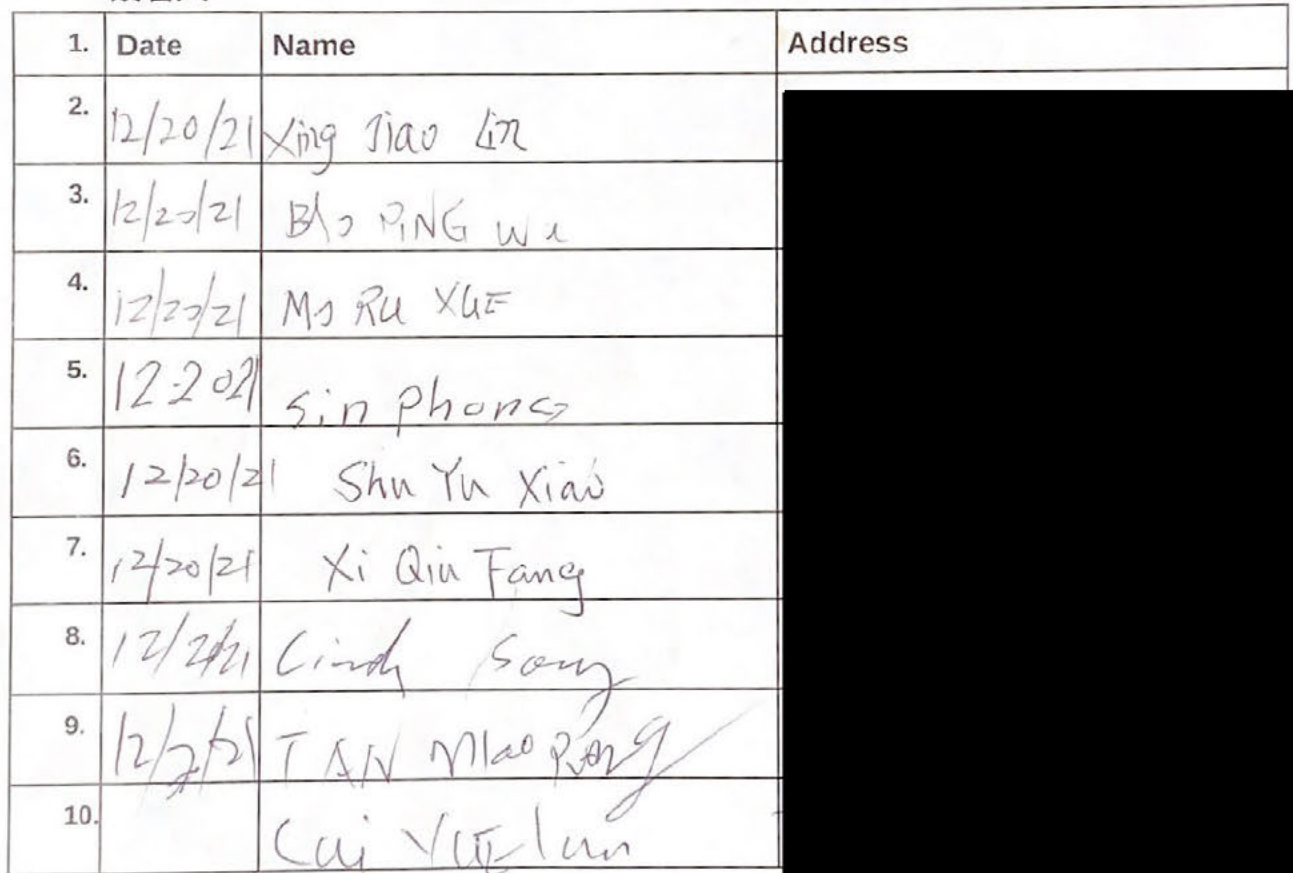 1. Date Name Address
2. 12/20/21 Xing Jiao Lin
3. 12/20/21 BAO PiNG Wu
4. 12/20/21 Mo RU XUE
5. 12-2021 Sin Phong
6. 12/20/21 Shu Yu Xiao
7. 12/20/21 Xi Qiu Fang
8. Cindy Song
9. TAN Miao
10. Cai YUE lan